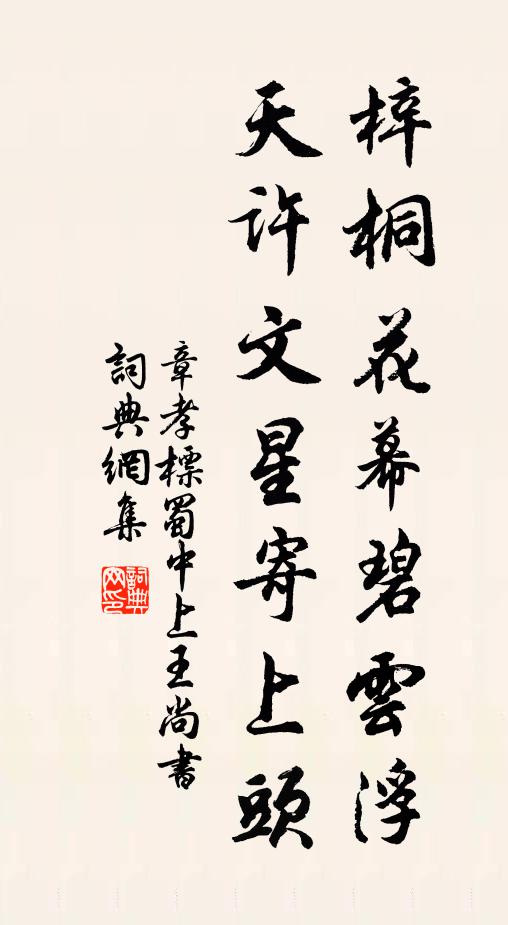 梓桐花幕碧雲浮
天許文星寄上頭
章孝標蜀中上王尚書
詞典網集
詞典网印